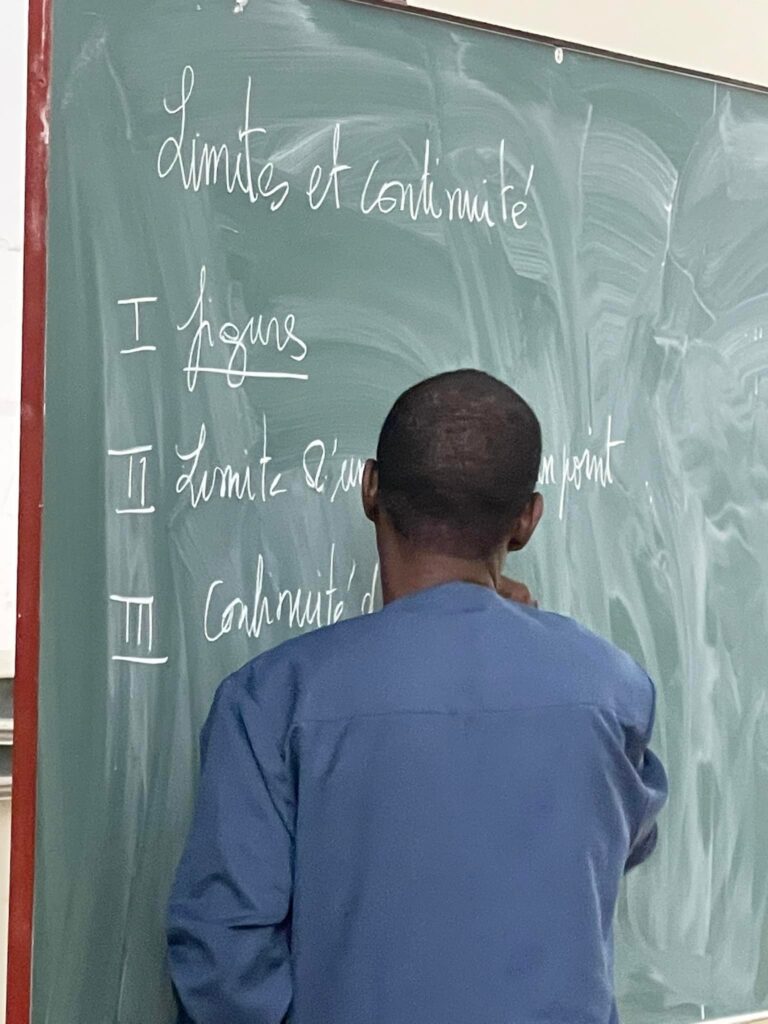 Limites et continuité
I figures
II Limite d'un un point
III Continuité d